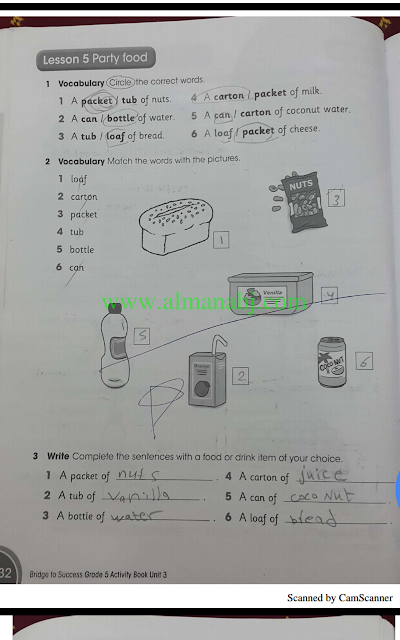 Lesson 5 Party food
1 Vocabulary Circle the correct words.
1 A packet / tub of nuts.
2 A can / bottle of water.
3 A tub / loaf of bread.
4 A carton / packet of milk.
5 A can / carton of coconut water.
6 A loaf / packet of cheese.
2 Vocabulary Match the words with the pictures.
1 loaf
2 carton
3 packet
4 tub
5 bottle
6 can
NUTS
3
1
Vanilla
4
www.almanahj.com
5
2
COCONUT
6
3 Write Complete the sentences with a food or drink item of your choice.
1 A packet of nuts.
2 A tub of vanilla.
3 A bottle of water.
4 A carton of juice
5 A can of coco Nut.
6 A loaf of blead
32
Bridge to Success Grade 5 Activity Book Unit 3
Scanned by CamScanner